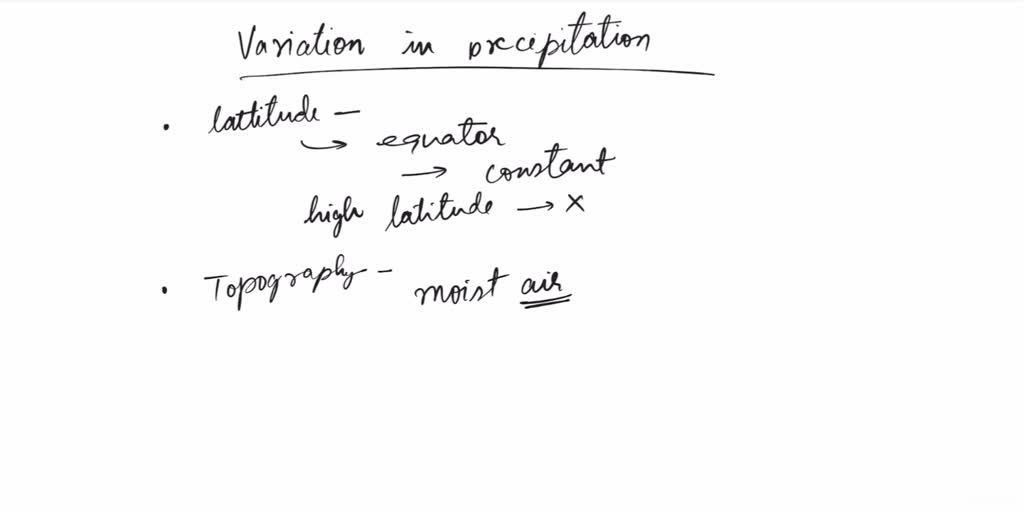 Variation in precipitation
• lattitude —
↳ equator
→ constant
high latitude → x
• Topography - moist air